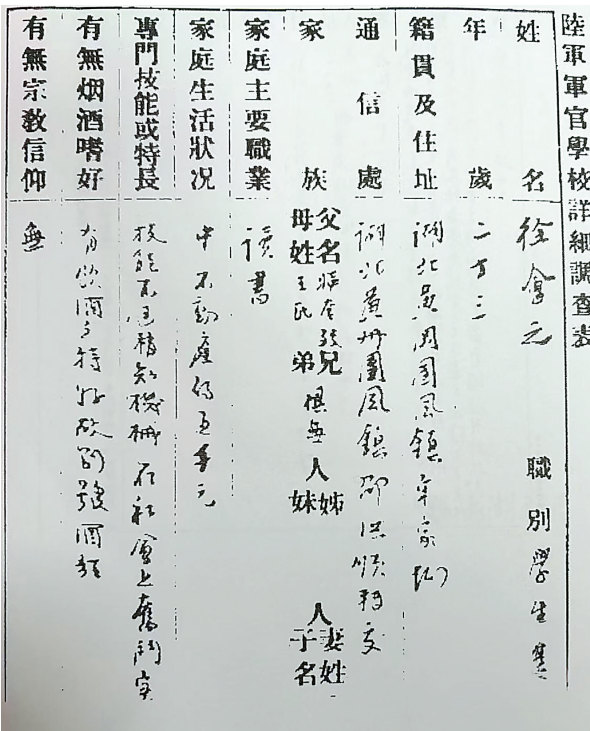 陸軍軍官學校詳細調查表
姓名 徐會之 職別 學生
年歲 二十三
籍貫及住址 湖北黃岡團風鎮
通信處 湖北黃州團風鎮 轉交
家族 父名 母姓 王氏 兄弟 俱無 人 姊妹 人 妻姓 子名
家庭主要職業 讀書
家庭生活狀况 中不動產約五千元
專門技能或特長 技能不 在社會上奮鬥
有無烟酒嗜好 有飲酒之特好故別號酒
有無宗教信仰 無